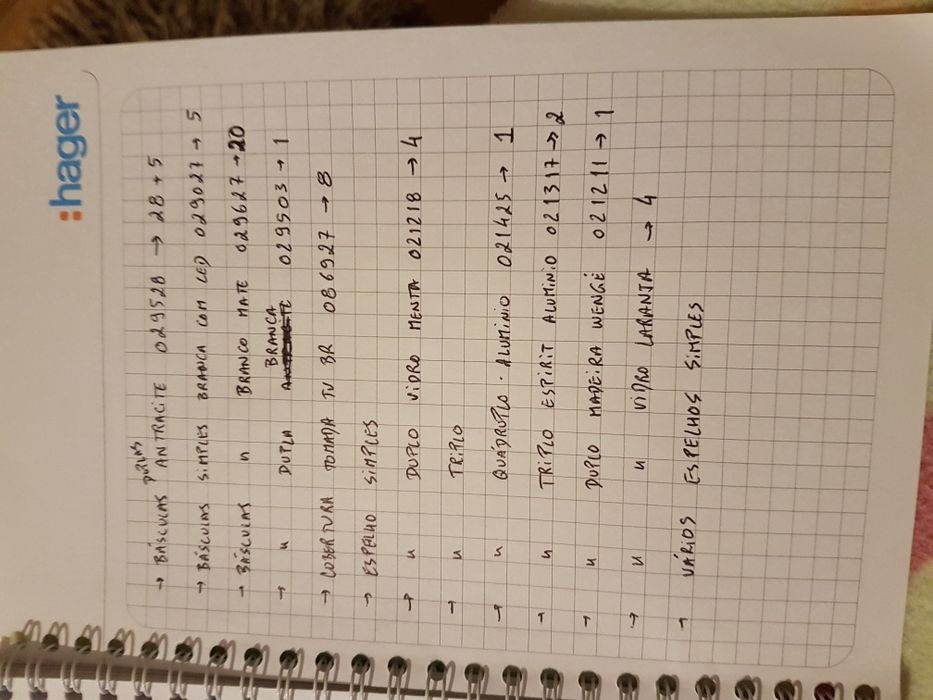 :hager
→ BÁSCULAS DUPLAS ANTRACITE 029528 → 28 + 5
→ BÁSCULAS SIMPLES BRANCA COM LED 029027 → 5
→ BÁSCULAS " BRANCO MATE 029627 → 20
→ " DUPLA BRANCA 029503 → 1
→ COBERTURA TOMADA TV BR 086927 → 8
→ ESPELHO SIMPLES
→ " DUPLO VIDRO MENTA 021218 → 4
→ " TRIPLO
→ " QUÁDRUPLO · ALUMINIO 021425 → 1
→ " TRIPLO ESPIRIT ALUMINIO 021317 → 2
→ " DUPLO MADEIRA WENGÉ 021211 → 1
→ " " VIDRO LARANJA → 4
→ VÁRIOS ESPELHOS SIMPLES